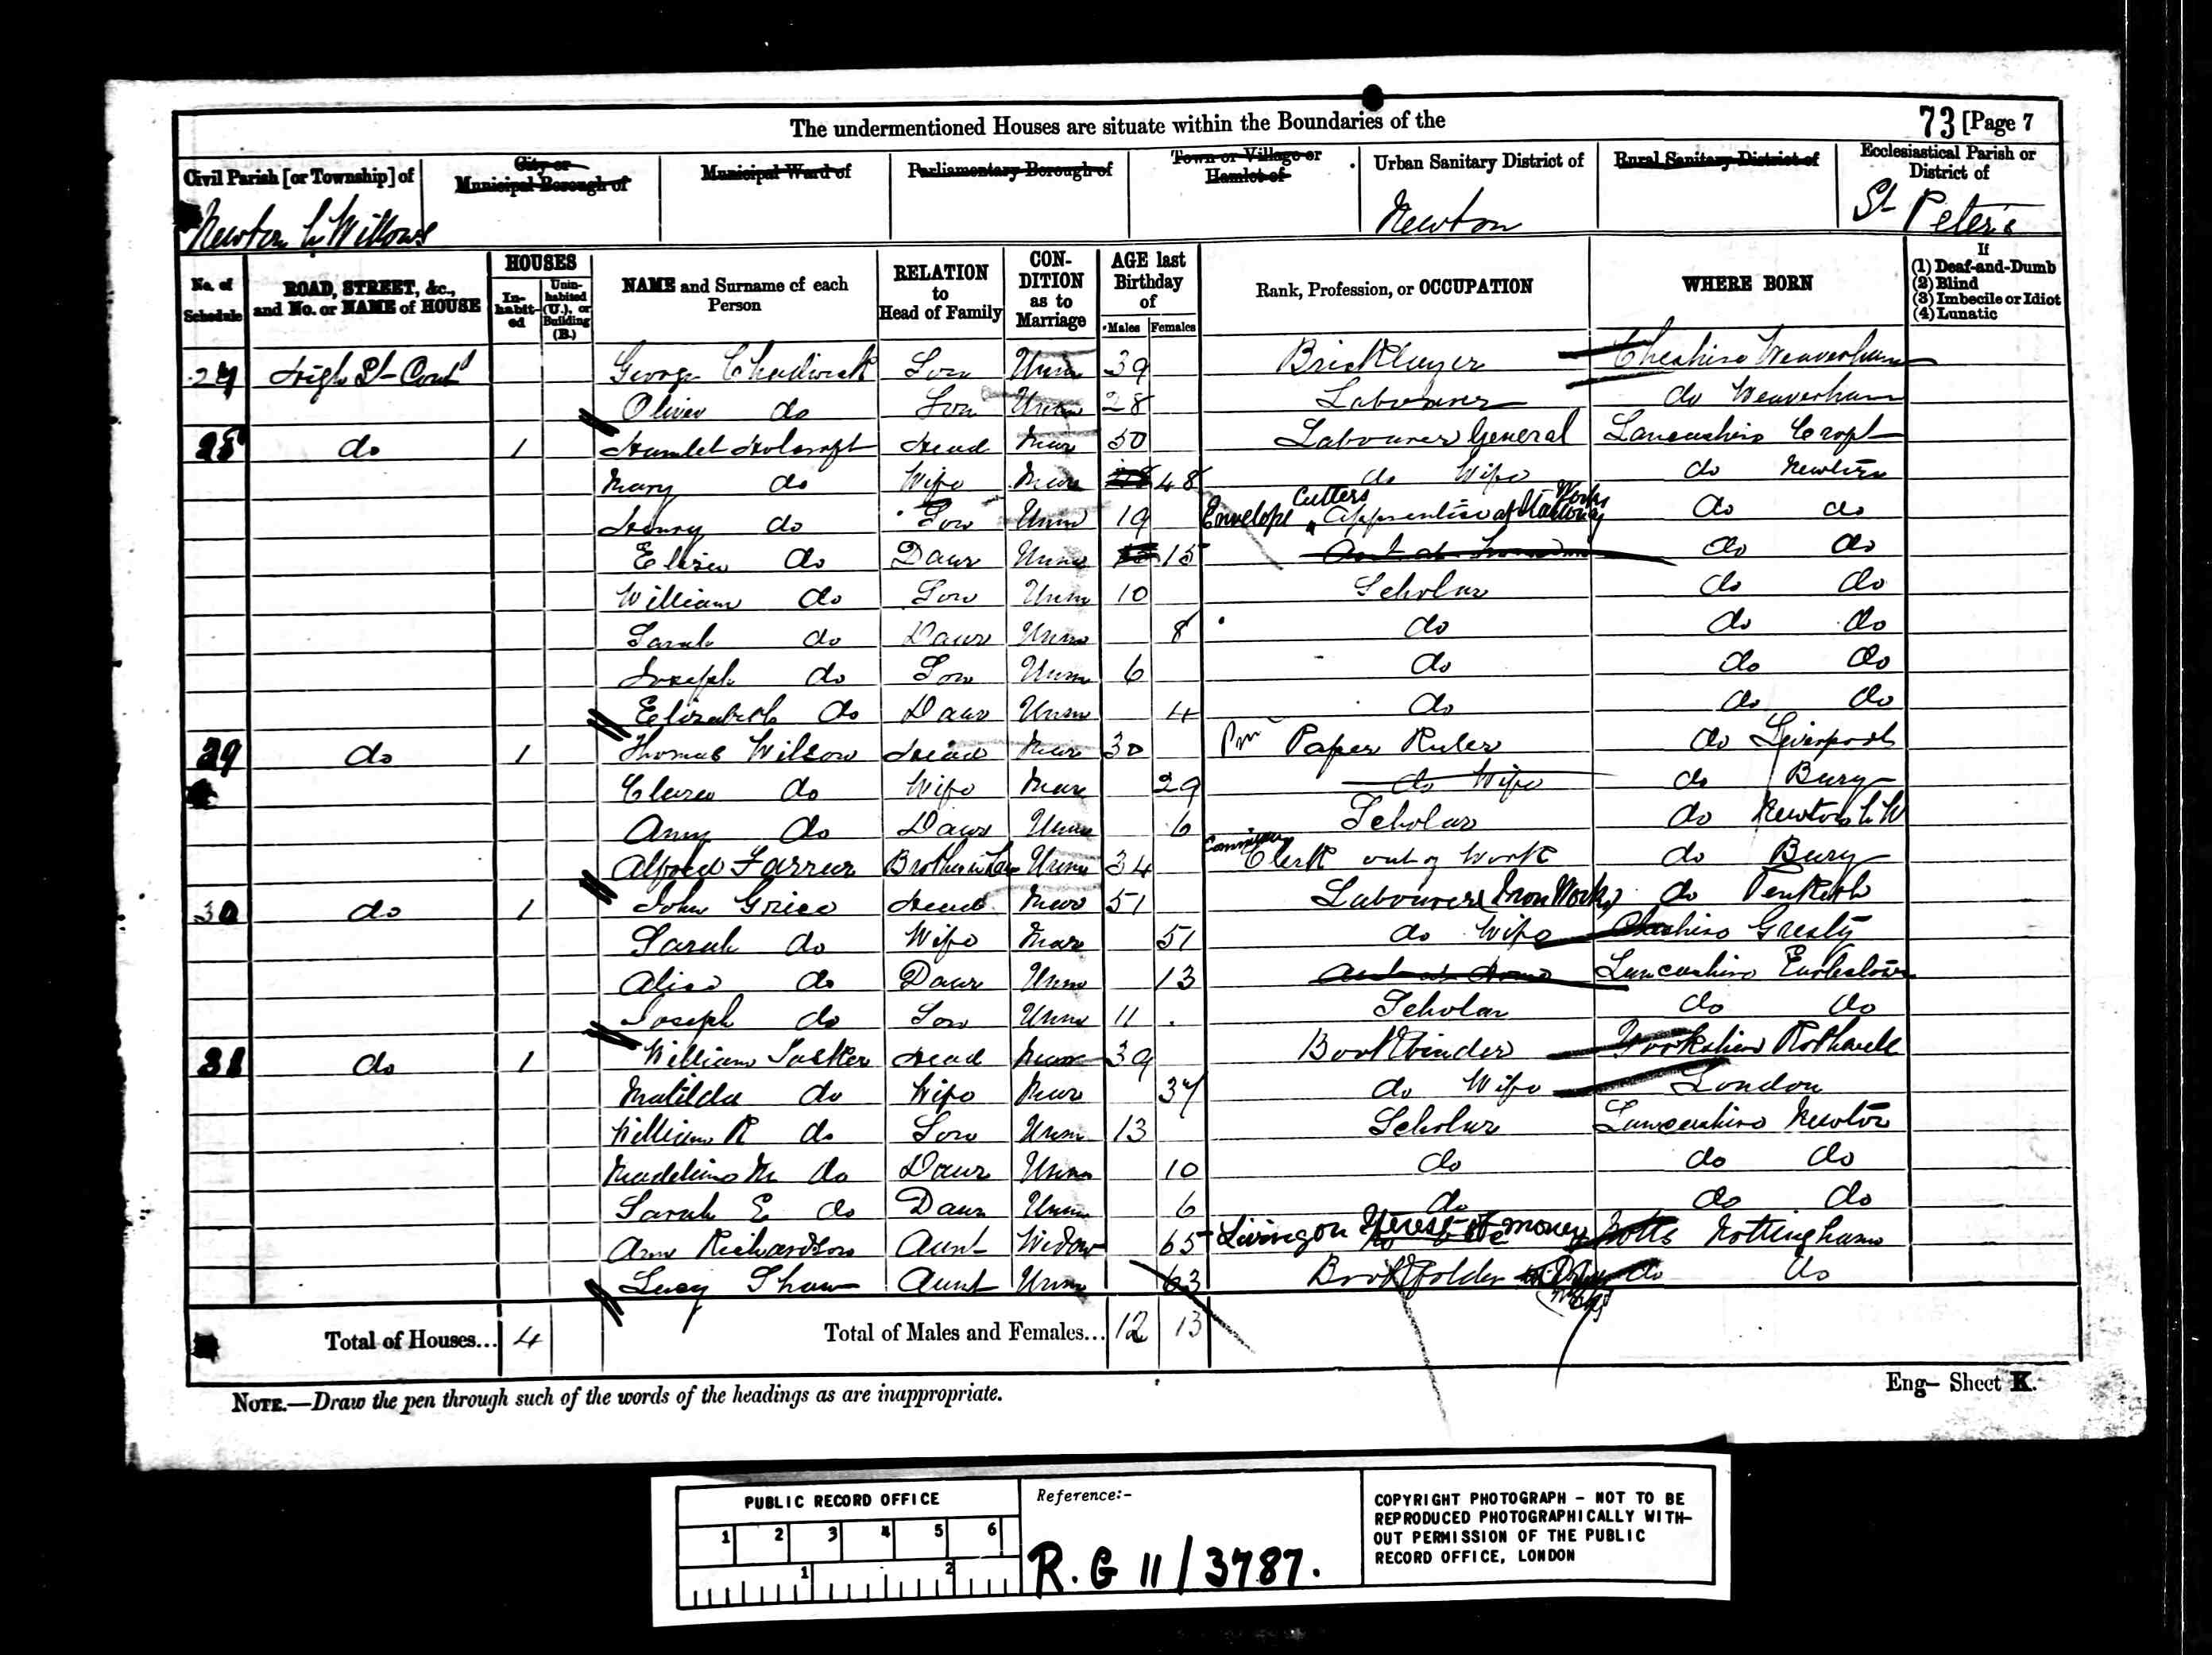 The undermentioned Houses are situate within the Boundaries of the
73 [Page 7
Civil Parish [or Township] of
City or Municipal Borough of
Municipal Ward of
Parliamentary Borough of
Town or Village or Hamlet of
Urban Sanitary District of
Rural Sanitary District of
Ecclesiastical Parish or District of
Newton Willows
Newton
St Peter's
No. of Schedule
ROAD, STREET, &c., and No. or NAME of HOUSE
HOUSES
In-habit-ed
Unin-habited (U.), or Building (B.)
NAME and Surname of each Person
RELATION to Head of Family
CON-DITION as to Marriage
AGE last Birthday of
Males
Females
Rank, Profession, or OCCUPATION
WHERE BORN
If
(1) Deaf-and-Dumb
(2) Blind
(3) Imbecile or Idiot
(4) Lunatic
27 High St Contd George Chadwick Son Unm 39 Bricklayer Cheshire Weaverham
Oliver do Son Unm 28 Labourer do Weaverham
28 do 1 Hamlet Holcroft Head Mar 50 Labourer General Lancashire Croft
Mary do Wife Mar 48 do Wife do Newton
Henry do Son Unm 19 Envelope Cutters Apprentice at Works do do
Eliza do Daur Unm 15 do do
William do Son Unm 10 Scholar do do
Sarah do Daur Unm 8 do do do
Joseph do Son Unm 6 do do do
Elizabeth do Daur Unm 4 do do do
29 do 1 Thomas Wilson Head Mar 30 Paper Ruler do Liverpool
Clara do Wife Mar 29 do Wife do Bury
Amy do Daur Unm 6 Scholar do Newton L W
Alfred Farrer Brother in Law Unm 34 Clerk out of Work do Bury
30 do 1 John Grice Head Mar 51 Labourer (Iron Works) do Penketh
Sarah do Wife Mar 51 do Wife Cheshire Gresty
Alice do Daur Unm 13 Lancashire Earlestown
Joseph do Son Unm 11 Scholar do do
31 do 1 William Tasker Head Mar 39 Bookbinder Yorkshire Rothwell
Matilda do Wife Mar 37 do Wife London
William R do Son Unm 13 Scholar Lancashire Newton
Madeline M do Daur Unm 10 do do do
Sarah E do Daur Unm 6 do do do
Ann Richardson Aunt Widow 65 Living on Interest of money Notts Nottingham
Lucy Shaw Aunt Unm 63 Bookfolder do do
Total of Houses... 4
Total of Males and Females... 12 13
NOTE.—Draw the pen through such of the words of the headings as are inappropriate.
Eng— Sheet K.
PUBLIC RECORD OFFICE
1 2 3 4 5 6
1 2
Reference:-
R.G 11/3787.
COPYRIGHT PHOTOGRAPH - NOT TO BE
REPRODUCED PHOTOGRAPHICALLY WITH-
OUT PERMISSION OF THE PUBLIC
RECORD OFFICE, LONDON